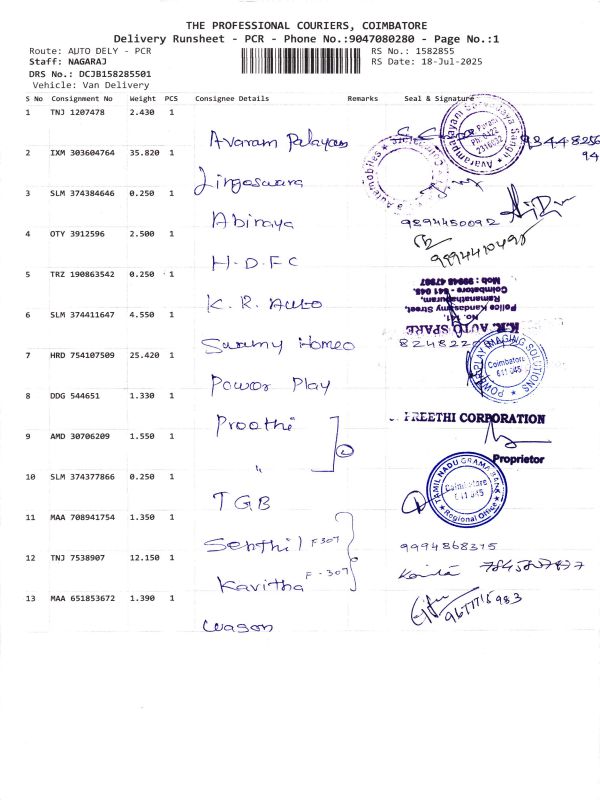 THE PROFESSIONAL COURIERS, COIMBATORE
Delivery Runsheet - PCR - Phone No.:9047080280 - Page No.:1
Route: AUTO DELY - PCR RS No.: 1582855
Staff: NAGARAJ RS Date: 18-Jul-2025
DRS No.: DCJB158285501
Vehicle: Van Delivery
S No Consignment No Weight PCS Consignee Details Remarks Seal & Signature
1 TNJ 1207478 2.430 1
Avaram Palayam
2 IXM 303604764 35.820 1
Lingeswara
3 SLM 374384646 0.250 1
Abinaya 9894450092
4 OTY 3912596 2.500 1
H.D.F.C 9894410495
5 TRZ 190863542 0.250 1
K.R. Auto
K.R. AUTO SPARE
No. 141,
Police Kandasamy Street,
Ramanathapuram,
Coimbatore - 641 045.
Mob : 99948 47867
6 SLM 374411647 4.550 1
Swamy Homeo
7 HRD 754107509 25.420 1
Power Play
POWER PLAY IMAGING SOLUTIONS
Coimbatore
641 045
8 DDG 544651 1.330 1
Preethi
PREETHI CORPORATION
9 AMD 30706209 1.550 1
"
2
Proprietor
10 SLM 374377866 0.250 1
TGB
TAMIL NADU GRAMA BANK
Coimbatore
641 045
Regional Office
11 MAA 708941754 1.350 1
Senthil F 307 9994868375
12 TNJ 7538907 12.150 1
Kavitha F-307
13 MAA 651853672 1.390 1
wason 9677715983